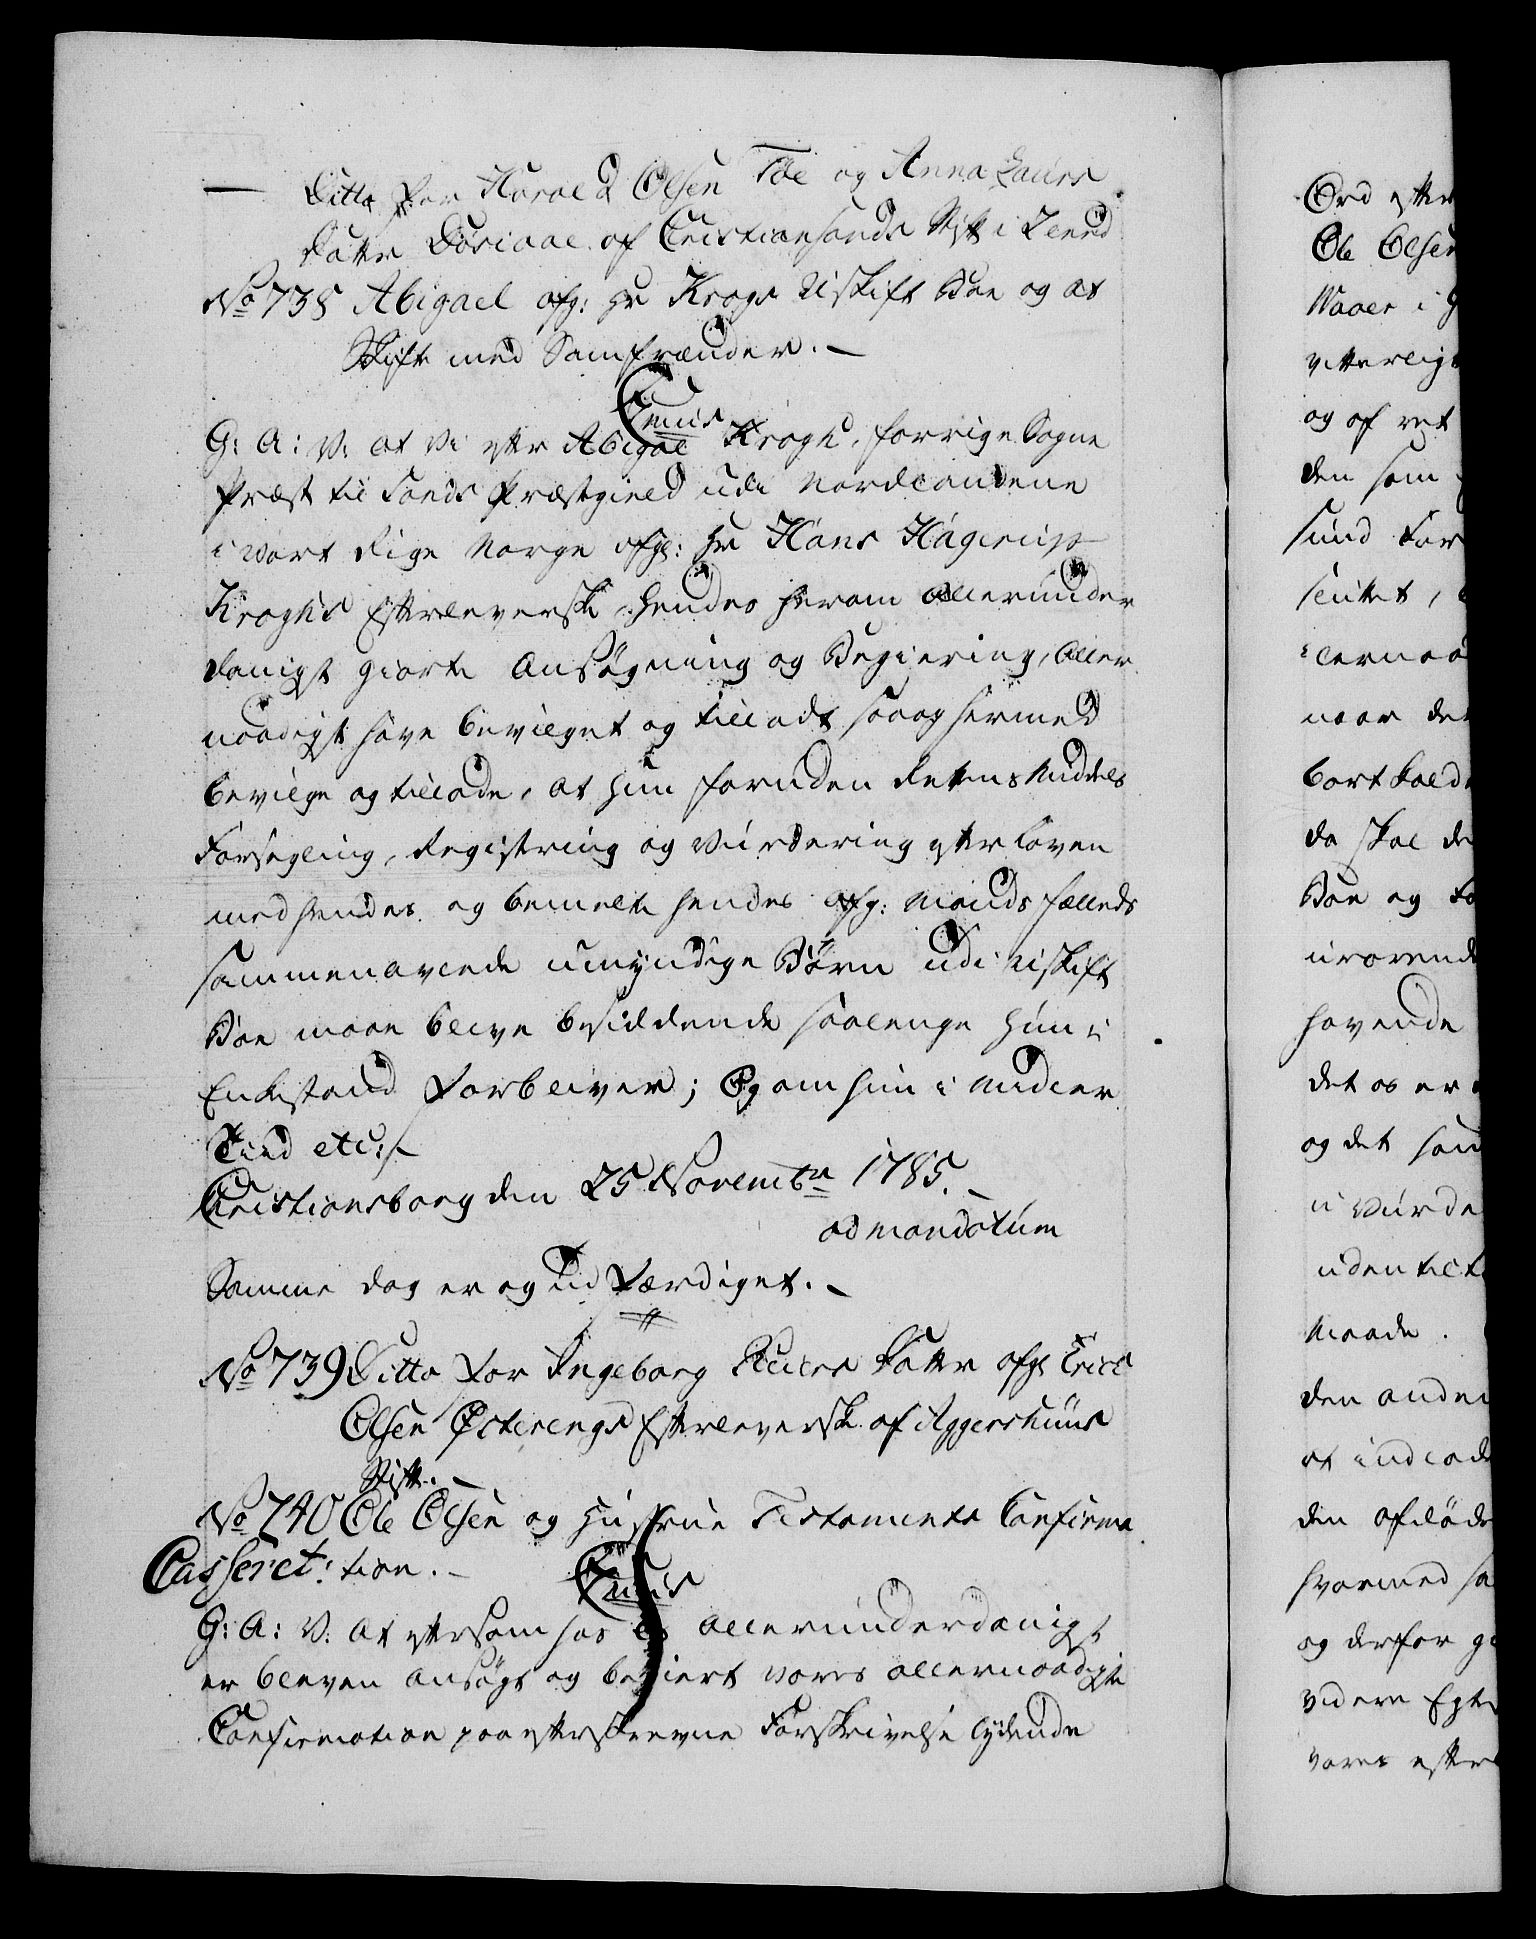 Ditto for Harald Olsen Toe og Anna Laurs
datter af Christiansands Stift i Leeed
No 738 Abigael afg: Hr Kroges Uskift Boe og at
Skifte med Samfrænder.
G: A: V: at Vi efter Abigael Krogh, forrige Sogne
Præst til Præstegield udi Nordlandene
i vort Rige Norge afg: Hr Hans Hagerup
Kroghs Efterleverske hendes herom allerunder
danigst giorte Ansøgning og Begiering, aller
naadigst have bevilget og tilladt saa og hermed
bevilge og tillade, at hun foruden Rettens Middels
Forsegling, Registring og Vurdering efter Loven
med hendes og bemelte hendes afg: Mands fælleds
sammenavlede umyndige Børn udi Uskift
Boe maae blive besiddende saalenge hun i
Enkestand forbliver; Og om hun i midler
Tiid etc:
Cristiansborg den 25 Novembr 1785.
ad mandatum
Samme dag er og udfærdiget.
No 739 Ditto for Ingeborg Datter afg: Erich
Olsen Østerengs Efterleverske af Aggershuus
Stift.
No 740 Ole Olsen og Hustrue Testaments Confirma
Casseret: tion.
G: A: V: at eftersom hos os allerunderdanigst
er bleven ansøgt og begiert vores allernaadigste
Confirmation paa efterskrevne Forskrivelse lydende
Ord efter
Ole Olsen
Naaer i
vitterligt
og af ret
den som
sund For
sluttet,
naar det
bortkald
da skal de
Boe og
urørend
havende
det os er
og det
u vurde
uden
Maade.
den anden
at indlade
den afdøde
hvormed
og derfor
videre
vores efter